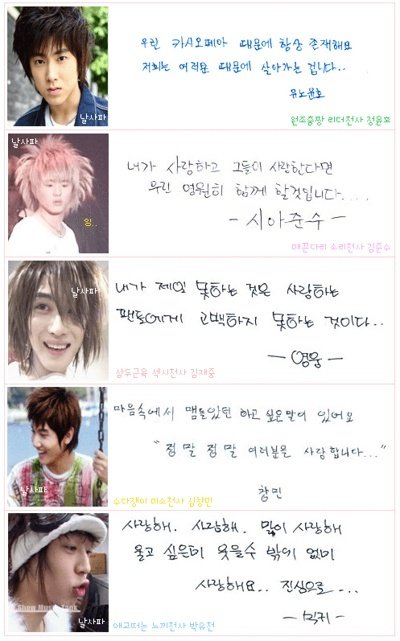 우린 카시오페아 때문에 항상 존재해요
저희는 여러분 때문에 살아가는 겁니다..
유노윤호
날사파
원조출짱 리더전사 정윤호
날사파
내가 사랑하고 그들이 사랑한다면
우린 영원히 함께 할것입니다....
- 시아준수 -
잉..
매끈다리 소리전사 김준수
내가 제일 못하는 것은 사랑하는
날사파
팬들에게 고백하지 못하는 것이다..
- 영웅 -
상두근육 섹시전사 김재중
마음속에서 맴돌았던 하고 싶은말이 있어요
" 정말 정말 여러분을 사랑합니다..."
창민
날사파
수다쟁이 미소전사 심창민
날사파
사랑해. 사랑해. 많이 사랑해
울고 싶은데 웃을수 밖에 없네
사랑해요.. 진심으로 ....
- 믹키 -
애교떠는 느끼전사 박유천